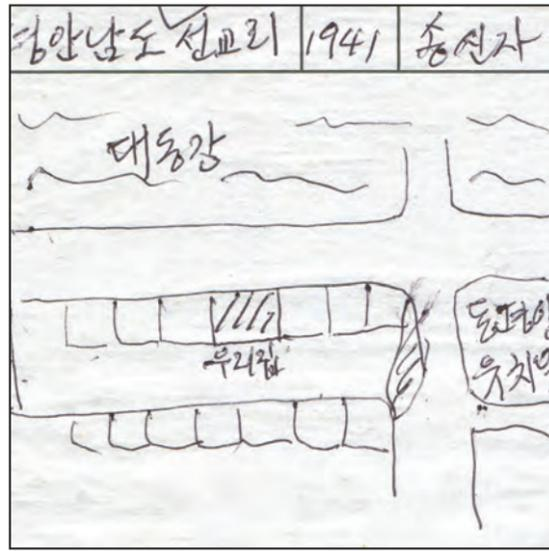 평안남도 선교리 1941 송신자
대동강
우리집
동평양
유치원